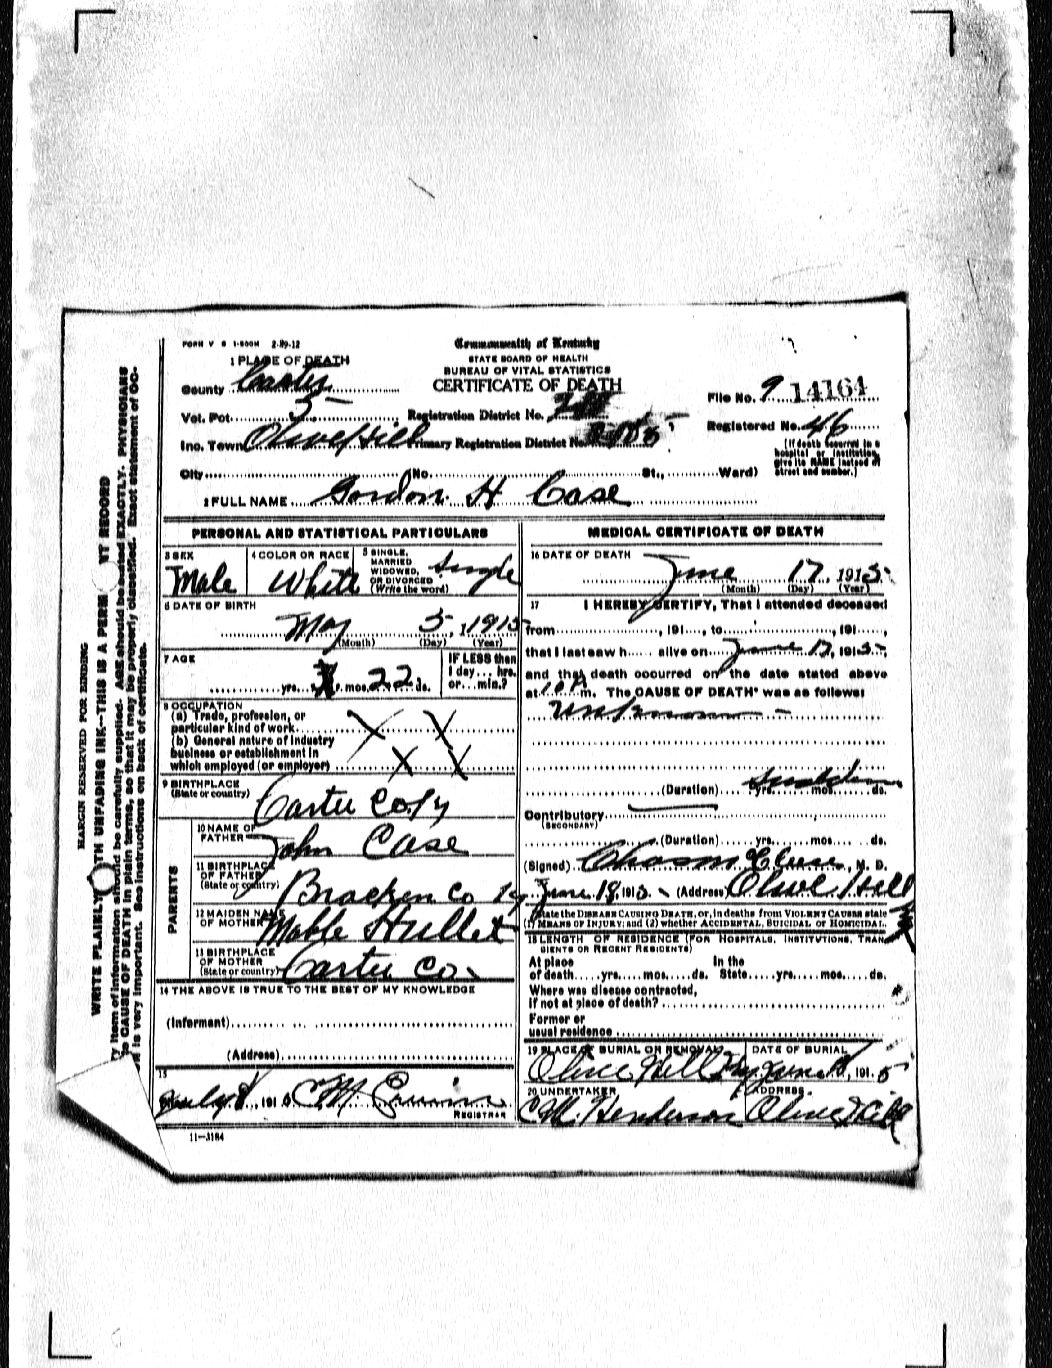 FORM V S 1-500M 2-29-12
Commonwealth of Kentucky
STATE BOARD OF HEALTH
BUREAU OF VITAL STATISTICS
CERTIFICATE OF DEATH
1 PLACE OF DEATH
County Carter
Vot. Pct. 5
Registration District No.
Inc. Town Olive Hill Primary Registration District No.
City (No. St., Ward)
File No. 9 14164
Registered No. 46
(If death occurred in a
hospital or institution,
give its NAME instead of
street and number.)
2 FULL NAME Gordon H Case
PERSONAL AND STATISTICAL PARTICULARS
3 SEX
Male
4 COLOR OR RACE
White
5 SINGLE,
MARRIED
WIDOWED,
OR DIVORCED
(Write the word)
Single
6 DATE OF BIRTH
May 5, 1915
(Month) (Day) (Year)
7 AGE
yrs. mos. 22 ds.
IF LESS than
1 day... hrs.
or... min.?
8 OCCUPATION
(a) Trade, profession, or
particular kind of work X X
(b) General nature of industry
business or establishment in
which employed (or employer) X X
9 BIRTHPLACE
(State or country)
Carter Co Ky
PARENTS
10 NAME OF
FATHER
John Case
11 BIRTHPLACE
OF FATHER
(State or country)
Bracken Co Ky
12 MAIDEN NAME
OF MOTHER
Mable Hullet
13 BIRTHPLACE
OF MOTHER
(State or country)
Carter Co.
14 THE ABOVE IS TRUE TO THE BEST OF MY KNOWLEDGE
(Informant)
(Address)
15
July 8, 191 5 C M
REGISTRAR
11-3184
MEDICAL CERTIFICATE OF DEATH
16 DATE OF DEATH
June 17, 1915
(Month) (Day) (Year)
17 I HEREBY CERTIFY, That I attended deceased
from , 191 , to , 191 ,
that I last saw h alive on June 17, 1915,
and that death occurred on the date stated above
at 10 A m. The CAUSE OF DEATH* was as follows:
Unknown -
(Duration) yrs. mos. ds.
Sudden
Contributory
(SECONDARY)
(Duration) yrs. mos. ds.
(Signed) , M. D.
June 18, 1915 (Address) Olive Hill
*State the DISEASE CAUSING DEATH, or, in deaths from VIOLENT CAUSES state
(1) MEANS OF INJURY; and (2) whether ACCIDENTAL, SUICIDAL or HOMICIDAL.
18 LENGTH OF RESIDENCE (FOR HOSPITALS, INSTITUTIONS, TRAN
SIENTS OR RECENT RESIDENTS)
At place In the
of death yrs. mos. ds. State yrs. mos. ds.
Where was disease contracted,
if not at place of death?
Former or
usual residence
19 PLACE OF BURIAL OR REMOVAL
Olive Hill Ky
DATE OF BURIAL
June 18, 191 5
20 UNDERTAKER
C M. Henderson
ADDRESS
Olive Hill
MARGIN RESERVED FOR BINDING
WRITE PLAINLY WITH UNFADING INK--THIS IS A PERM NT RECORD
y item of information should be carefully supplied. AGE should be stated EXACTLY. PHYSICIANS
CAUSE OF DEATH in plain terms, so that it may be properly classified. Exact statement of OC-
is very important. See instructions on back of certificate.